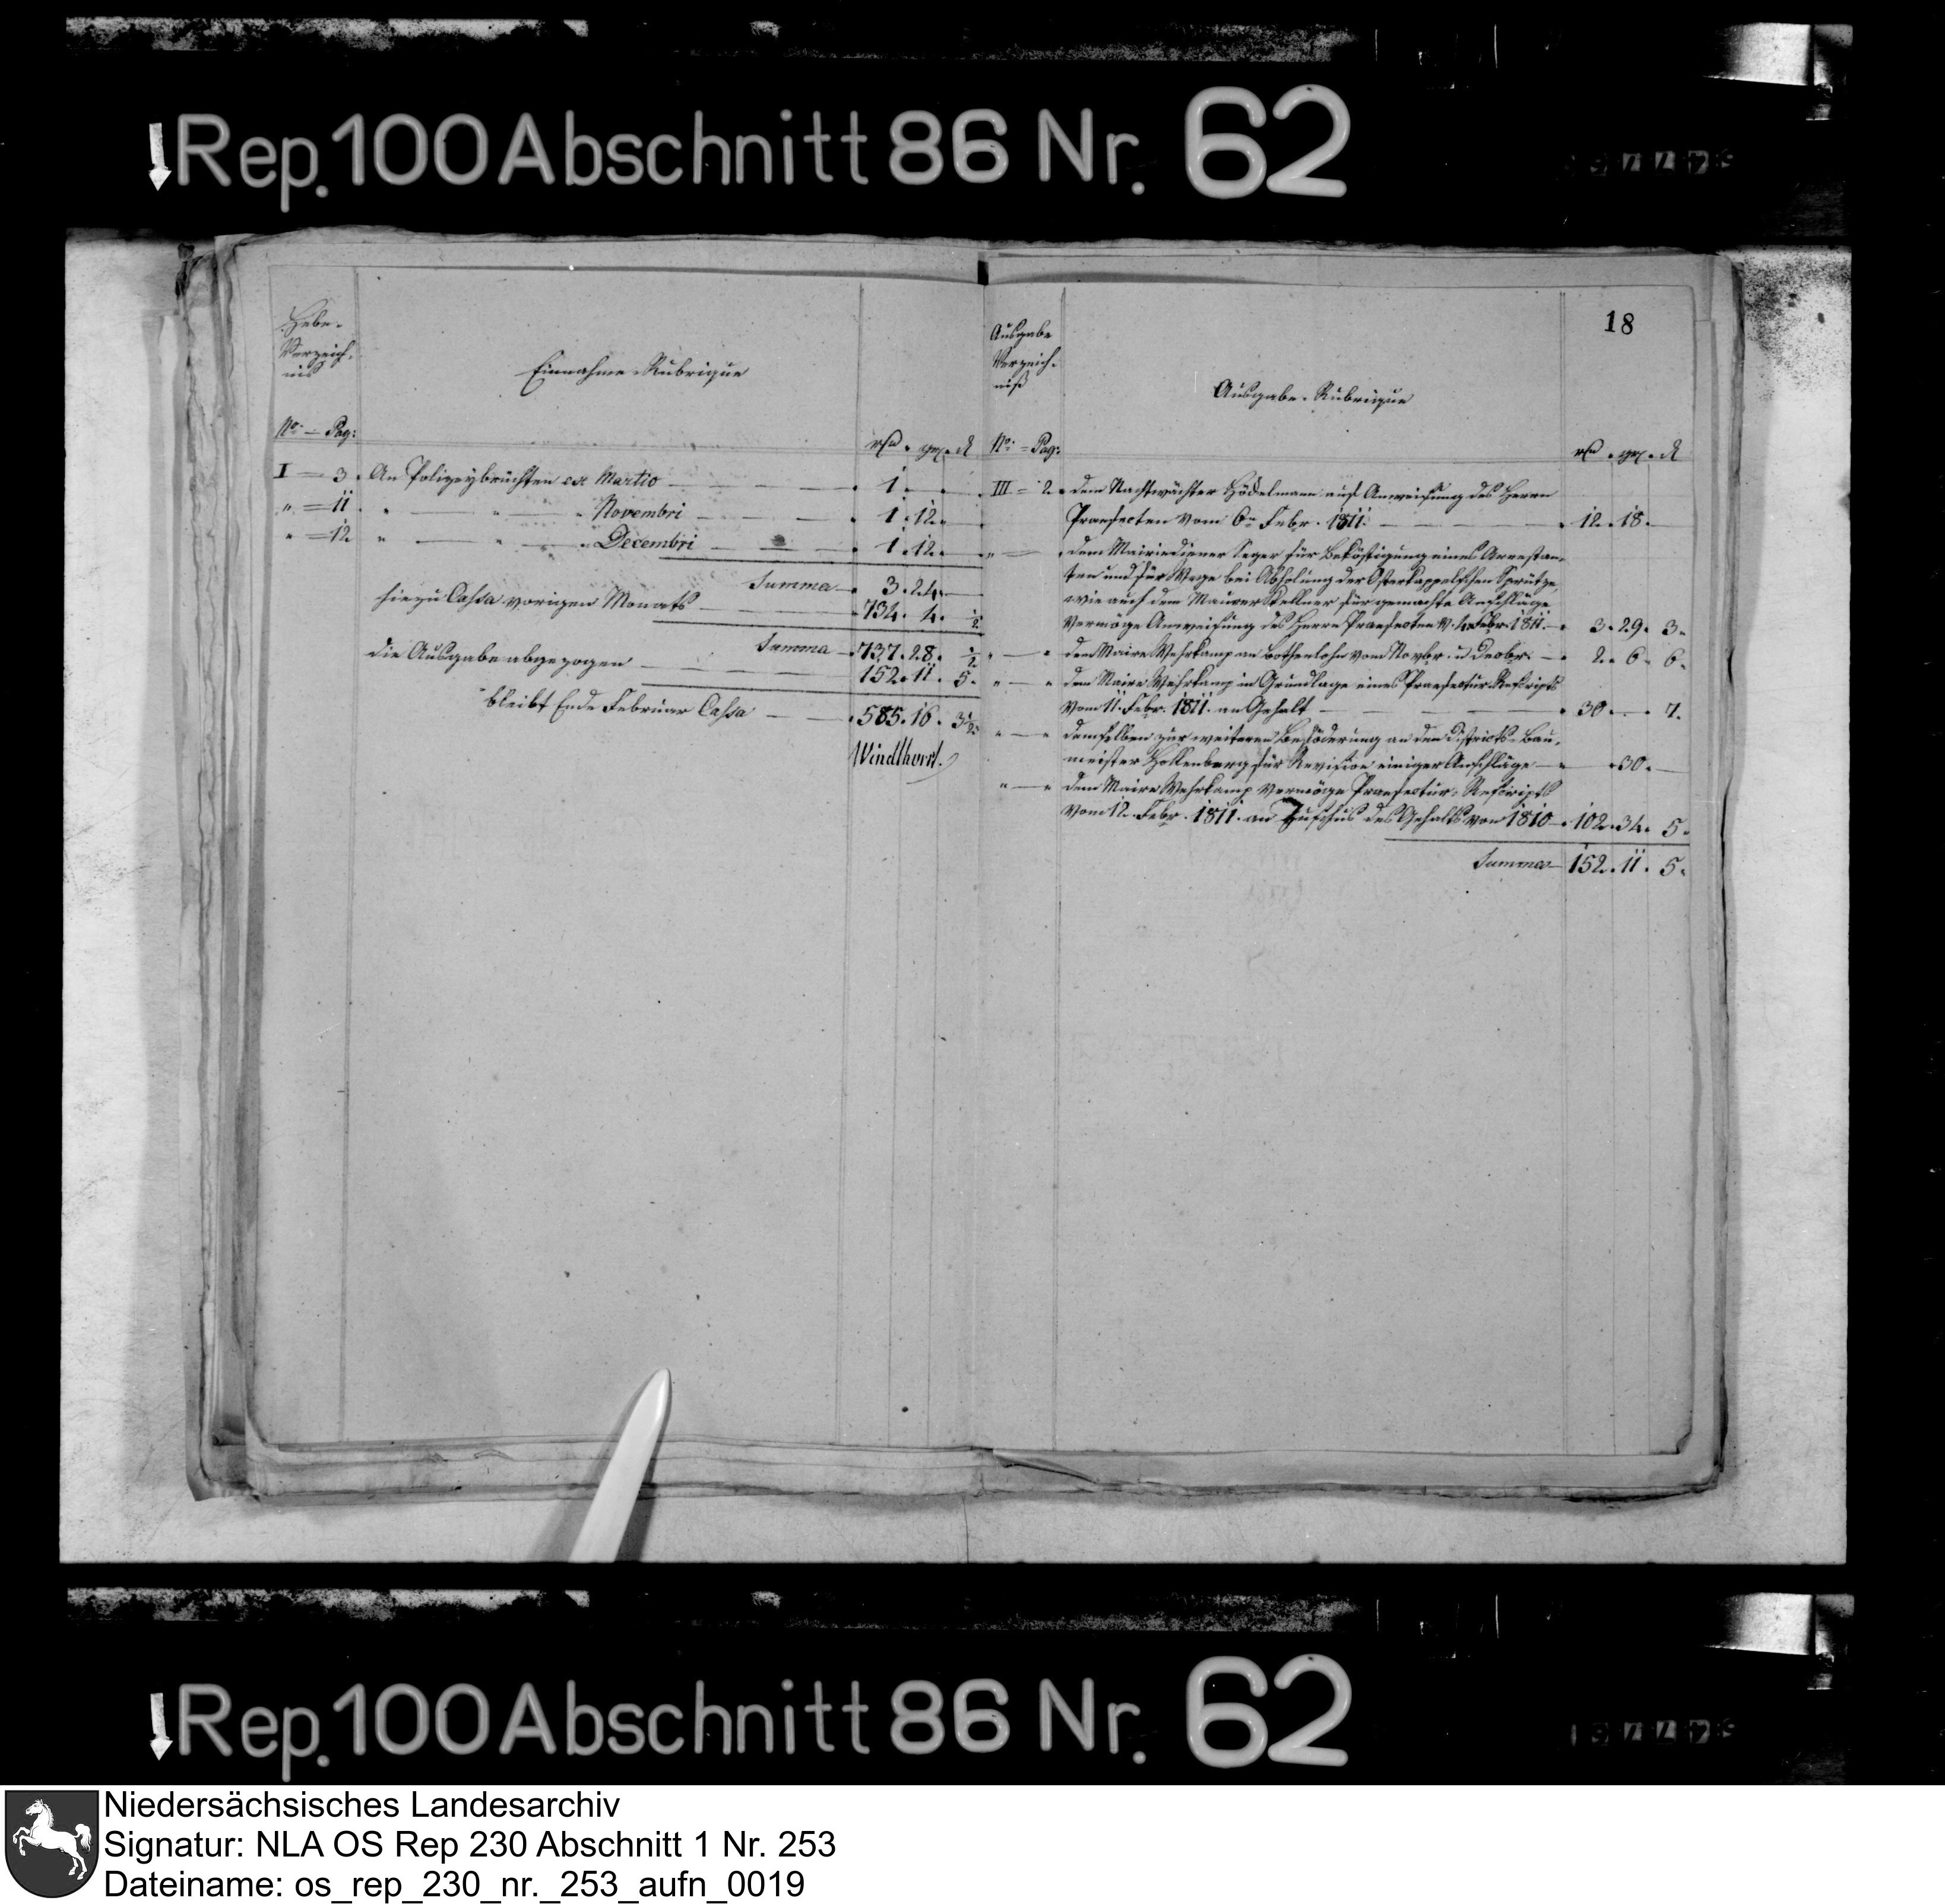 Rep. 100 Abschnitt 86 Nr. 62
18
Hebe-
Verzeich-
nis
Einnahme-Rubrique
No. — Pag:
I — 3. An Polizeybrüchten ex Martio — 1. —
" — 11. " — " — " Novembri — 1. 12. —
" — 12. " — " — " Decembri — 1. 12. —
Summa — 3. 24. —
hiezu Cassa vorigen Monats — 734. 4. ½
Summa — 737. 28. ½
die Ausgabe abgezogen — 152. 11. 5.
bleibt Ende Februar Cassa — 585. 16. 3½
Windthorst.
Ausgabe
Verzeich-
niß
Ausgabe-Rubrique
No. = Pag:
III = 2. dem Nachtwächter Hödelmann auf Anweisung des Herrn
Praefecten vom 6n Febr. 1811. — 12. 18. —
" — dem Mairiediener Seger für Beköstigung eines Arrestan-
ten und für Wege bei Abholung der Osterkappelschen Sprütze,
wie auch dem Maurer Kellner für gemachte Anschläge
vermöge Anweisung des Herrn Praefecten v. 4 Febr. 1811. — 3. 29. 3.
" — " dem Maire Wehrkamp an Bothenlohn vom Novbr. u Decbr. — 2. 6. 6.
" — " dem Maire Wehrkamp in Grundlage eines Praefectur-Rescripts
vom 11. Febr. 1811. an Gehalt — 30. — 7.
" — " demselben zur weiteren Beföderung an den Districts-Bau-
meister Hollenberg für Revision einiger Anschläge — 30. —
" — " dem Maire Wehrkamp vermöge Praefectur-Rescripts
vom 12. Febr. 1811. an Zuschus des Gehalts von 1810 — 102. 34. 5.
Summa — 152. 11. 5.
Rep. 100 Abschnitt 86 Nr. 62
Niedersächsisches Landesarchiv
Signatur: NLA OS Rep 230 Abschnitt 1 Nr. 253
Dateiname: os_rep_230_nr._253_aufn_0019